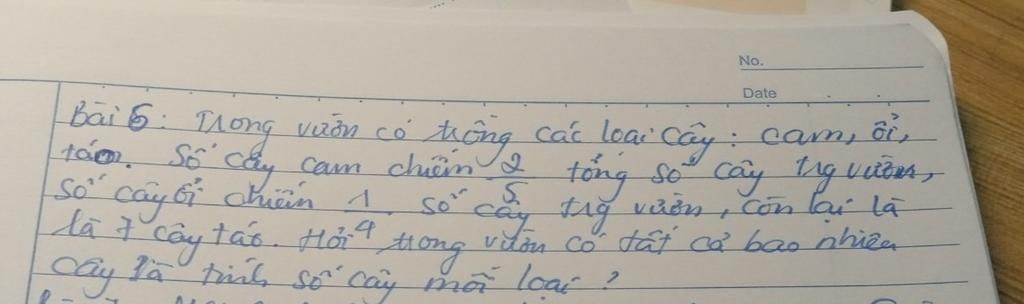 No.
Date
Bài 5: Trong vườn có trồng các loại cây: cam, ổi,
táo. Số cây cam chiếm 2/5 tổng số cây trg vườn,
số cây ổi chiếm 1/4 số cây trg vườn, còn lại là
là 7 cây táo. Hỏi trong vườn có tất cả bao nhiêu
cây và tính số cây mỗi loại?